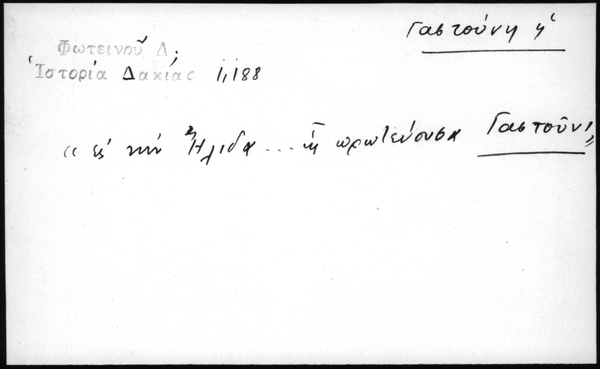 Γαστούνη ἡ
Φωτεινοῦ Δ;
Ἱστορία Δακίας I, 188
« εἰς τὴν Ἤλιδα... ἡ πρωτεύουσα Γαστοῦνι »